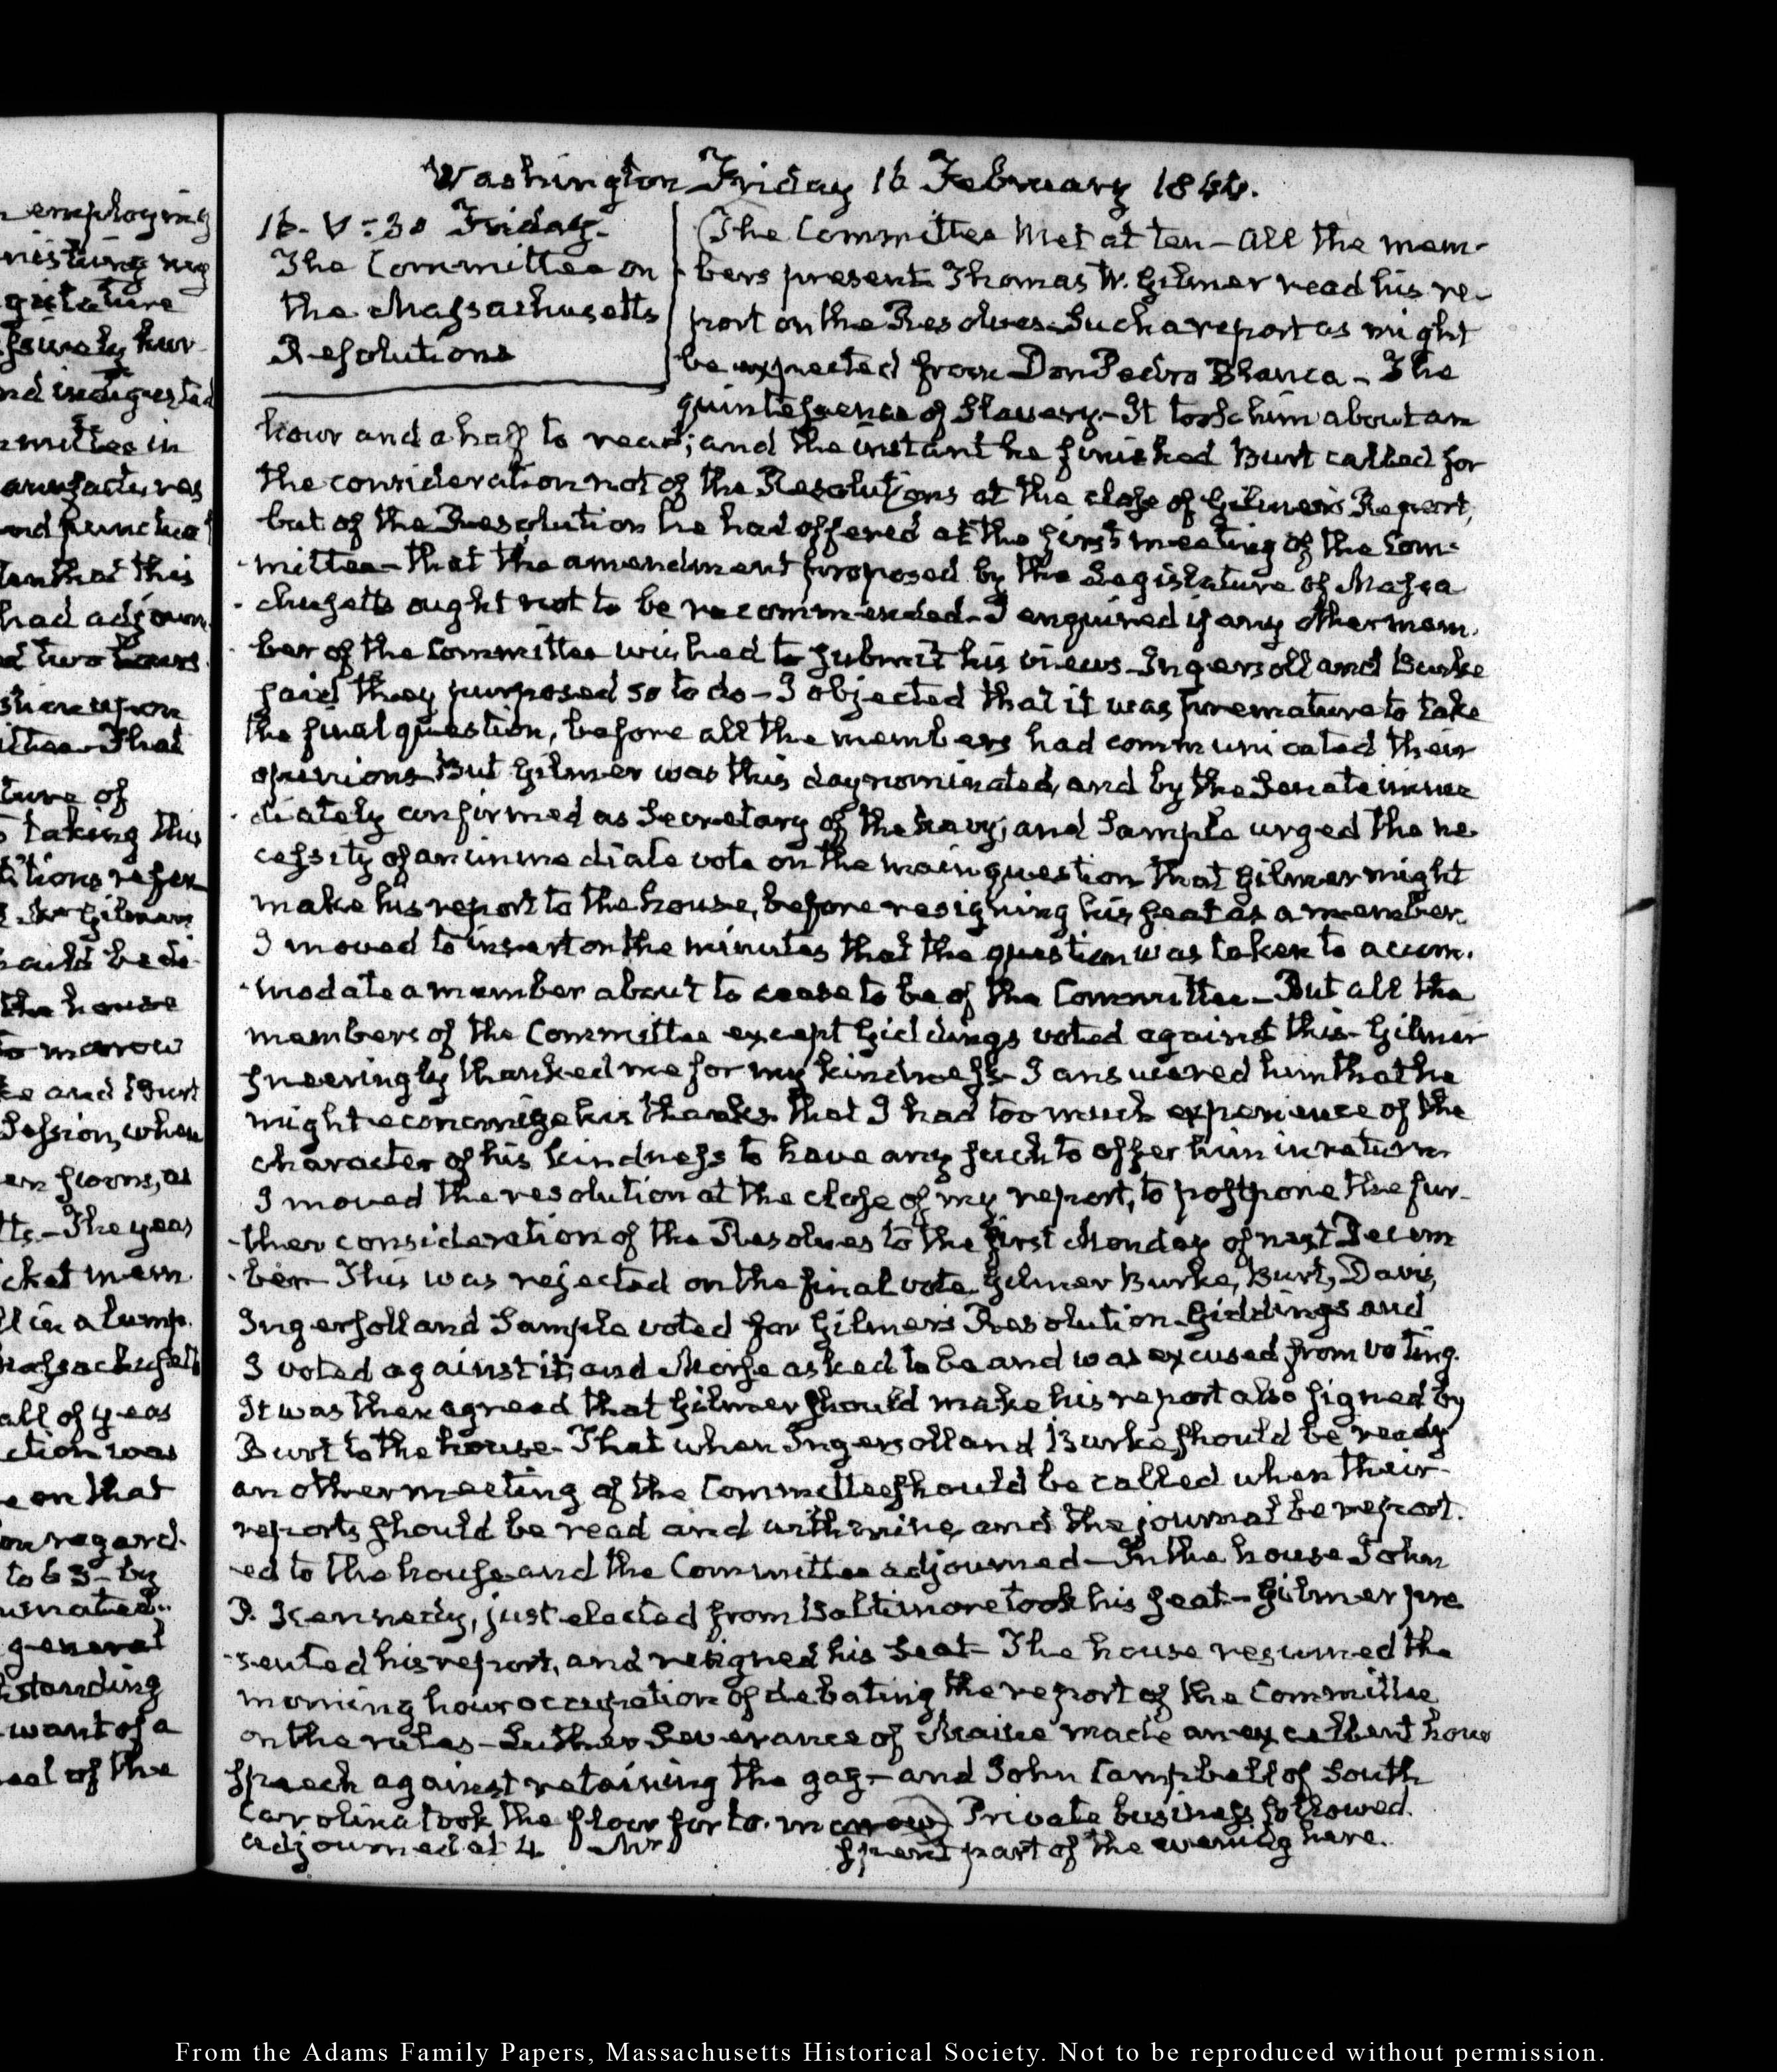 Washington Friday 16 February 1844.
16. V:30 Friday.
The Committee on
the Massachusetts
Resolutions
The Committee Met at ten – all the mem-
bers present Thomas W. Gilmer read his re-
port on the Resolves. Such a report as might
be expected from Don Pedro Blanca – The
quintessence of Slavery – It took him about an
hour and a half to read; and the instant he finished Burt called for
the consideration not of the Resolutions at the close of Gilmer's Report,
but of the Resolution he had offered at the first meeting of the Com-
mittee – that the amendment proposed by the Legislature of Massa
chusetts ought not to be recommended – I enquired if any other mem.
ber of the Committee wished to submit his views – Ingersoll and Burke
said they purposed so to do – I objected that it was premature to take
the final question, before all the members had communicated their
opinions – But Gilmer was this day nominated, and by the Senate imme
diately confirmed as Secretary of the Navy; and Sample urged the ne
cessity of an immediate vote on the main question that Gilmer might
make his report to the house, before resigning his seat as a member.
I moved to insert on the minutes that the question was taken to accom.
modate a member about to cease to be of the Committee – But all the
members of the Committee except Giddings voted against this – Gilmer
sneeringly thanked me for my kindness – I answered him that he
might economize his thanks that I had too much experience of the
character of his kindness to have any such to offer him in return
I moved the resolution at the close of my report, to postpone the fur-
ther consideration of the Resolves to the first Monday of next Decem
ber – This was rejected on the final vote. Gilmer Burke, Burt, Davis,
Ingersoll and Sample voted for Gilmer's Resolution – Giddings and
I voted against it, and Morse asked to be and was excused from voting.
It was then agreed that Gilmer should make his report also signed by
Burt to the house – That when Ingersoll and Burke should be ready
another meeting of the Committee should be called when their
reports should be read and with mine, and the journal be report.
ed to the house and the Committee adjourned – In the house John
P. Kennedy, just elected from Baltimore took his seat – Gilmer pre
sented his report, and resigned his seat – The house resumed the
morning hour occupation of debating the report of the Committee
on the rules – Luther Severance of Maine made an excellent hour
speech against retaining the gag – and John Campbell of South
Carolina took the floor for to-morrow Private business followed.
adjourned at 4 Mr spent part of the evening here.
employing
gislature
nd indigested
mmittee in
manufactures
and punctual
that this
had adjourn
two hours
That
ture of
taking this
Gilmer
the house
to morrow
and Burt
Session, when
The yeas
in a lump.
all of yeas
was
on that
regard.
to 63 – by
general
standing
want of a
of the
From the Adams Family Papers, Massachusetts Historical Society. Not to be reproduced without permission.